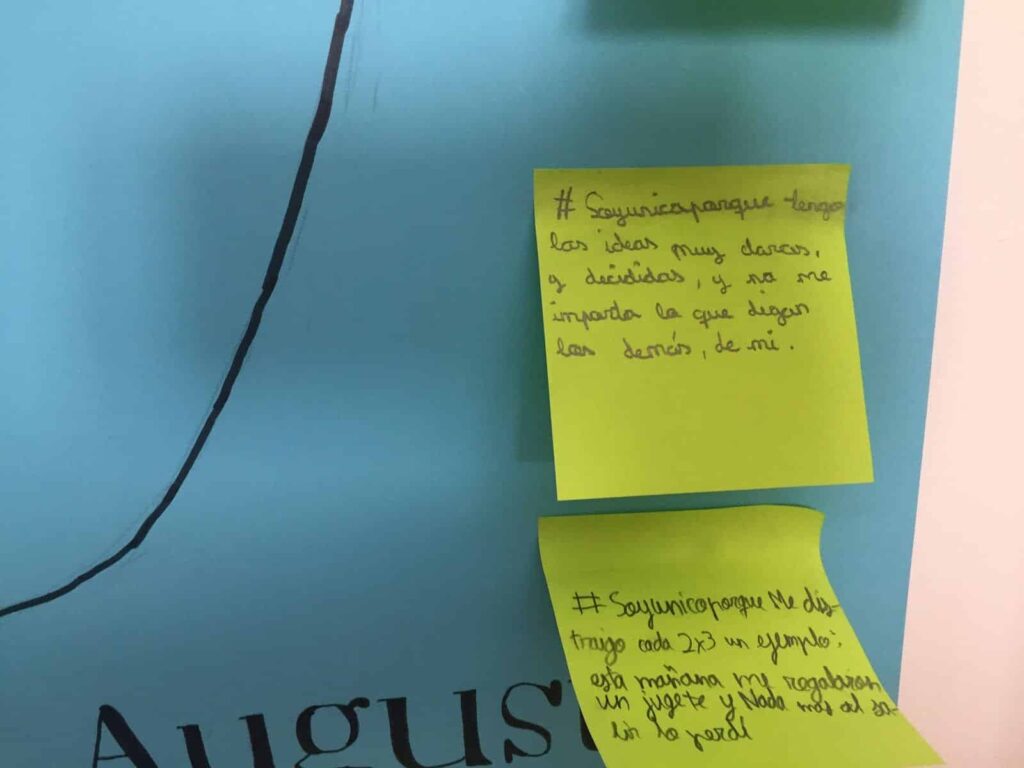 # Soyunicaporque tengo
las ideas muy claras,
y decididas, y no me
importa lo que digan
los demás, de mi.
# Soyunicoporque Me dis-
traigo cada 2x3 un ejemplo:
esta mañana me regalaron
un jugete y Nada más al sa-
lir lo perdí
August